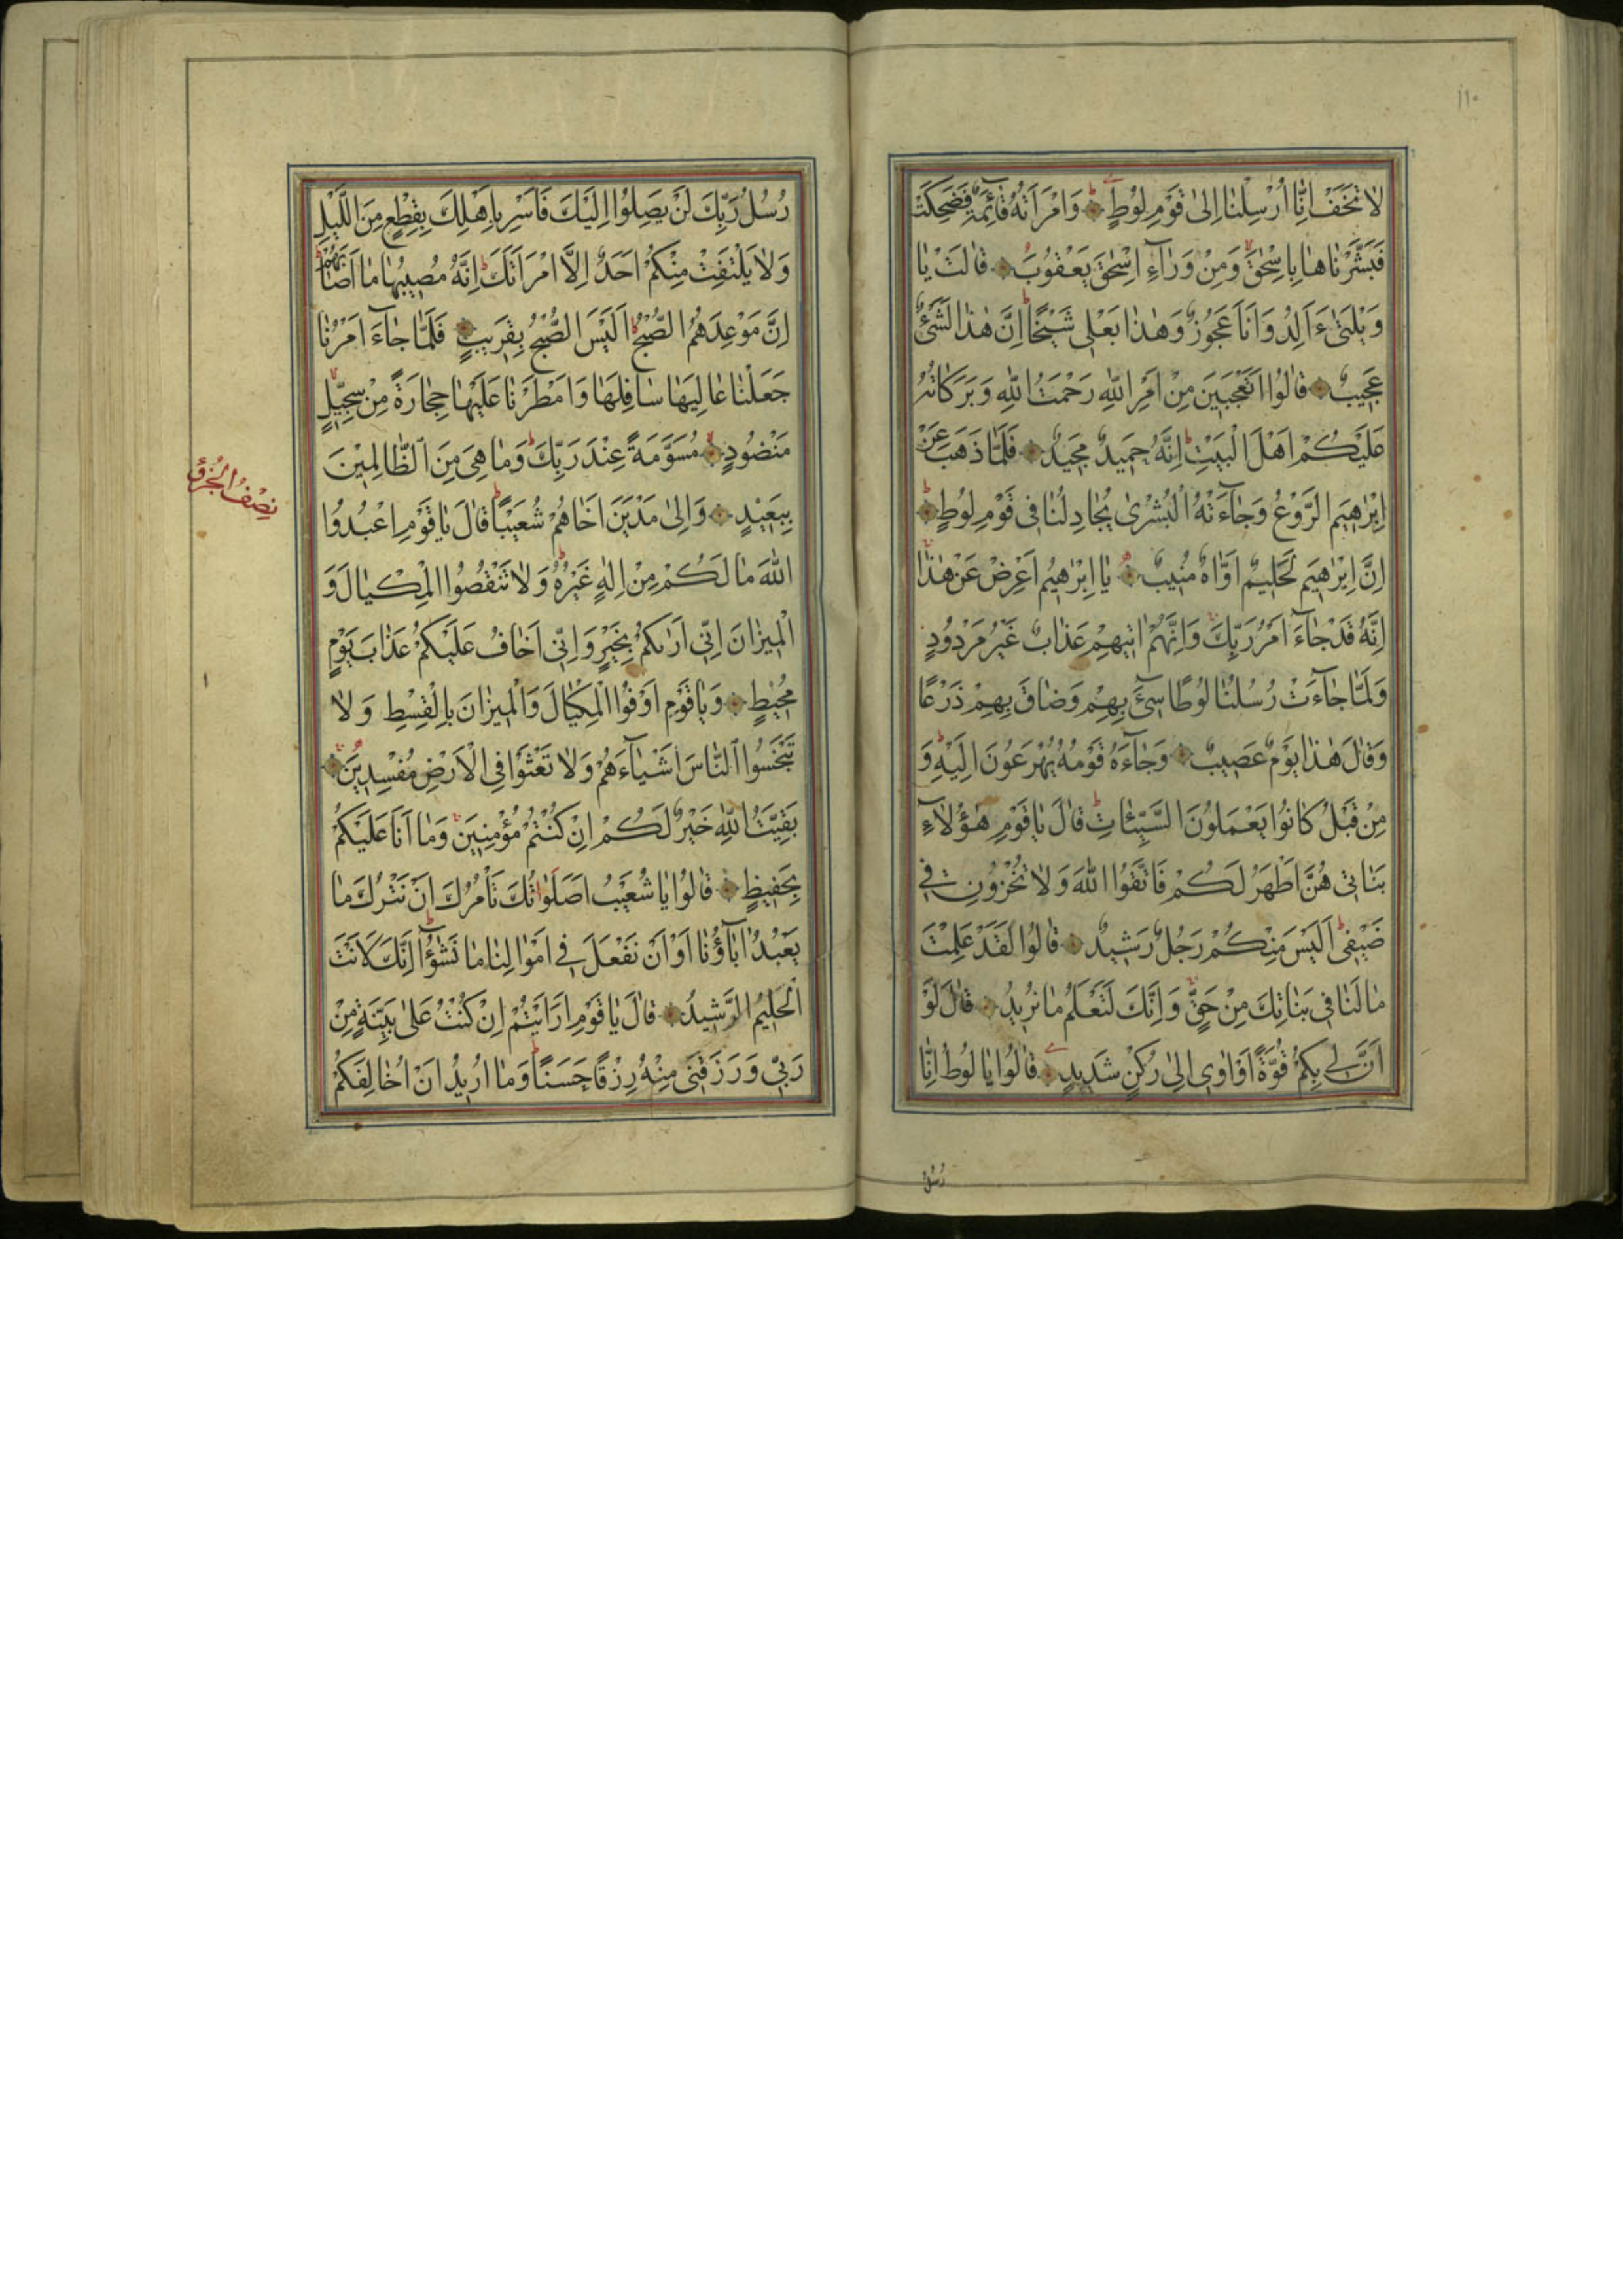 ١١٠
لاٰ تَخَفْ اِنّٰا اُرْسِلْنٰا اِلىٰ قَوْمِ لُوطٍ وَامْرَاَتُهُ قٰآئِمَةٌ فَضَحِكَتْ
فَبَشَّرْنٰاهٰا بِاِسْحٰقَ وَمِنْ وَرٰآءِ اِسْحٰقَ يَعْقُوبَ قٰالَتْ يٰا
وَيْلَتىٰ ءَاَلِدُ وَاَنَا عَجُوزٌ وَهٰذٰا بَعْلى شَيْخًا اِنَّ هٰذٰا لَشَىْءٌ
عَجِيبٌ قٰالُوا اَتَعْجَبِينَ مِنْ اَمْرِ اللّٰهِ رَحْمَتُ اللّٰهِ وَبَرَكٰاتُهُ
عَلَيْكُمْ اَهْلَ الْبَيْتِ اِنَّهُ حَمِيدٌ مَجِيدٌ فَلَمّٰا ذَهَبَ عَنْ
اِبْرٰهِيمَ الرَّوْعُ وَجٰآءَتْهُ الْبُشْرىٰ يُجٰادِلُنٰا فى قَوْمِ لُوطٍ
اِنَّ اِبْرٰهِيمَ لَحَلِيمٌ اَوّٰاهٌ مُنِيبٌ يٰا اِبْرٰهِيمُ اَعْرِضْ عَنْ هٰذٰا
اِنَّهُ قَدْ جٰآءَ اَمْرُ رَبِّكَ وَاِنَّهُمْ اٰتِيهِمْ عَذٰابٌ غَيْرُ مَرْدُودٍ
وَلَمّٰا جٰآءَتْ رُسُلُنٰا لُوطًا سِىٓءَ بِهِمْ وَضٰاقَ بِهِمْ ذَرْعًا
وَقٰالَ هٰذٰا يَوْمٌ عَصِيبٌ وَجٰآءَهُ قَوْمُهُ يُهْرَعُونَ اِلَيْهِ وَ
مِنْ قَبْلُ كٰانُوا يَعْمَلُونَ السَّيِّئٰاتِ قٰالَ يٰا قَوْمِ هٰؤُلاٰۤءِ
بَنٰاتى هُنَّ اَطْهَرُ لَكُمْ فَاتَّقُوا اللّٰهَ وَلاٰ تُخْزُونِ فى
ضَيْفى اَلَيْسَ مِنْكُمْ رَجُلٌ رَشِيدٌ قٰالُوا لَقَدْ عَلِمْتَ
مٰا لَنٰا فى بَنٰاتِكَ مِنْ حَقٍّ وَاِنَّكَ لَتَعْلَمُ مٰا نُرِيدُ قٰالَ لَوْ
اَنَّ لى بِكُمْ قُوَّةً اَوْ اٰوى اِلىٰ رُكْنٍ شَدِيدٍ قٰالُوا يٰا لُوطُ اِنّٰا
رُسُلُ
رُسُلُ رَبِّكَ لَنْ يَصِلُوا اِلَيْكَ فَاَسْرِ بِاَهْلِكَ بِقِطْعٍ مِنَ اللَّيْلِ
وَلاٰ يَلْتَفِتْ مِنْكُمْ اَحَدٌ اِلَّا امْرَاَتَكَ اِنَّهُ مُصِيبُهٰا مٰا اَصٰابَهُمْ
اِنَّ مَوْعِدَهُمُ الصُّبْحُ اَلَيْسَ الصُّبْحُ بِقَرِيبٍ فَلَمّٰا جٰآءَ اَمْرُنٰا
جَعَلْنٰا عٰالِيَهٰا سٰافِلَهٰا وَاَمْطَرْنٰا عَلَيْهٰا حِجٰارَةً مِنْ سِجِّيلٍ
مَنْضُودٍ مُسَوَّمَةً عِنْدَ رَبِّكَ وَمٰا هِىَ مِنَ الظّٰالِمِينَ
بِبَعِيدٍ وَاِلىٰ مَدْيَنَ اَخٰاهُمْ شُعَيْبًا قٰالَ يٰا قَوْمِ اعْبُدُوا
نِصْفُ الْجُزْءِ
اللّٰهَ مٰا لَكُمْ مِنْ اِلٰهٍ غَيْرُهُ وَلاٰ تَنْقُصُوا الْمِكْيٰالَ وَ
الْمِيزٰانَ اِنّى اَرٰىكُمْ بِخَيْرٍ وَاِنّى اَخٰافُ عَلَيْكُمْ عَذٰابَ يَوْمٍ
مُحِيطٍ وَيٰا قَوْمِ اَوْفُوا الْمِكْيٰالَ وَالْمِيزٰانَ بِالْقِسْطِ وَلاٰ
تَبْخَسُوا النّٰاسَ اَشْيٰآءَهُمْ وَلاٰ تَعْثَوْا فِى الْاَرْضِ مُفْسِدِينَ
بَقِيَّتُ اللّٰهِ خَيْرٌ لَكُمْ اِنْ كُنْتُمْ مُؤْمِنِينَ وَمٰا اَنَا عَلَيْكُمْ
بِحَفِيظٍ قٰالُوا يٰا شُعَيْبُ اَصَلَوٰاتُكَ تَاْمُرُكَ اَنْ نَتْرُكَ مٰا
يَعْبُدُ اٰبٰآؤُنٰا اَوْ اَنْ نَفْعَلَ فى اَمْوٰالِنٰا مٰا نَشٰۤؤُا اِنَّكَ لَاَنْتَ
الْحَلِيمُ الرَّشِيدُ قٰالَ يٰا قَوْمِ اَرَاَيْتُمْ اِنْ كُنْتُ عَلىٰ بَيِّنَةٍ مِنْ
رَبّى وَرَزَقَنى مِنْهُ رِزْقًا حَسَنًا وَمٰا اُرِيدُ اَنْ اُخٰالِفَكُمْ